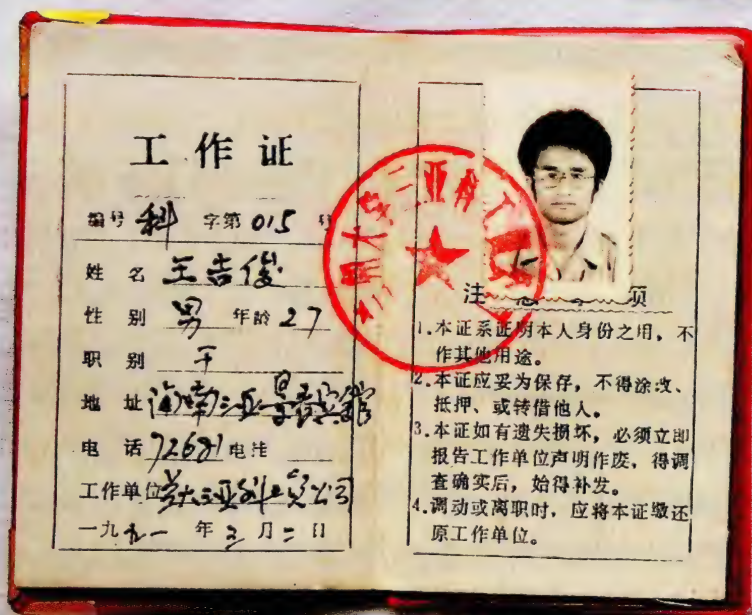 工作证
编号 科 字第 015 号
姓 名 王吉俊
性 别 男 年龄 27
职 别 干
地 址 海南三亚
电 话 72681 电挂
工作单位 兰大三亚科工贸公司
一九九一 年 三 月 二 日
兰州大学三亚科工贸
注 意 事 项
1.本证系证明本人身份之用,不
作其他用途。
2.本证应妥为保存,不得涂改、
抵押、或转借他人。
3.本证如有遗失损坏,必须立即
报告工作单位声明作废,得调
查确实后,始得补发。
4.调动或离职时,应将本证缴还
原工作单位。